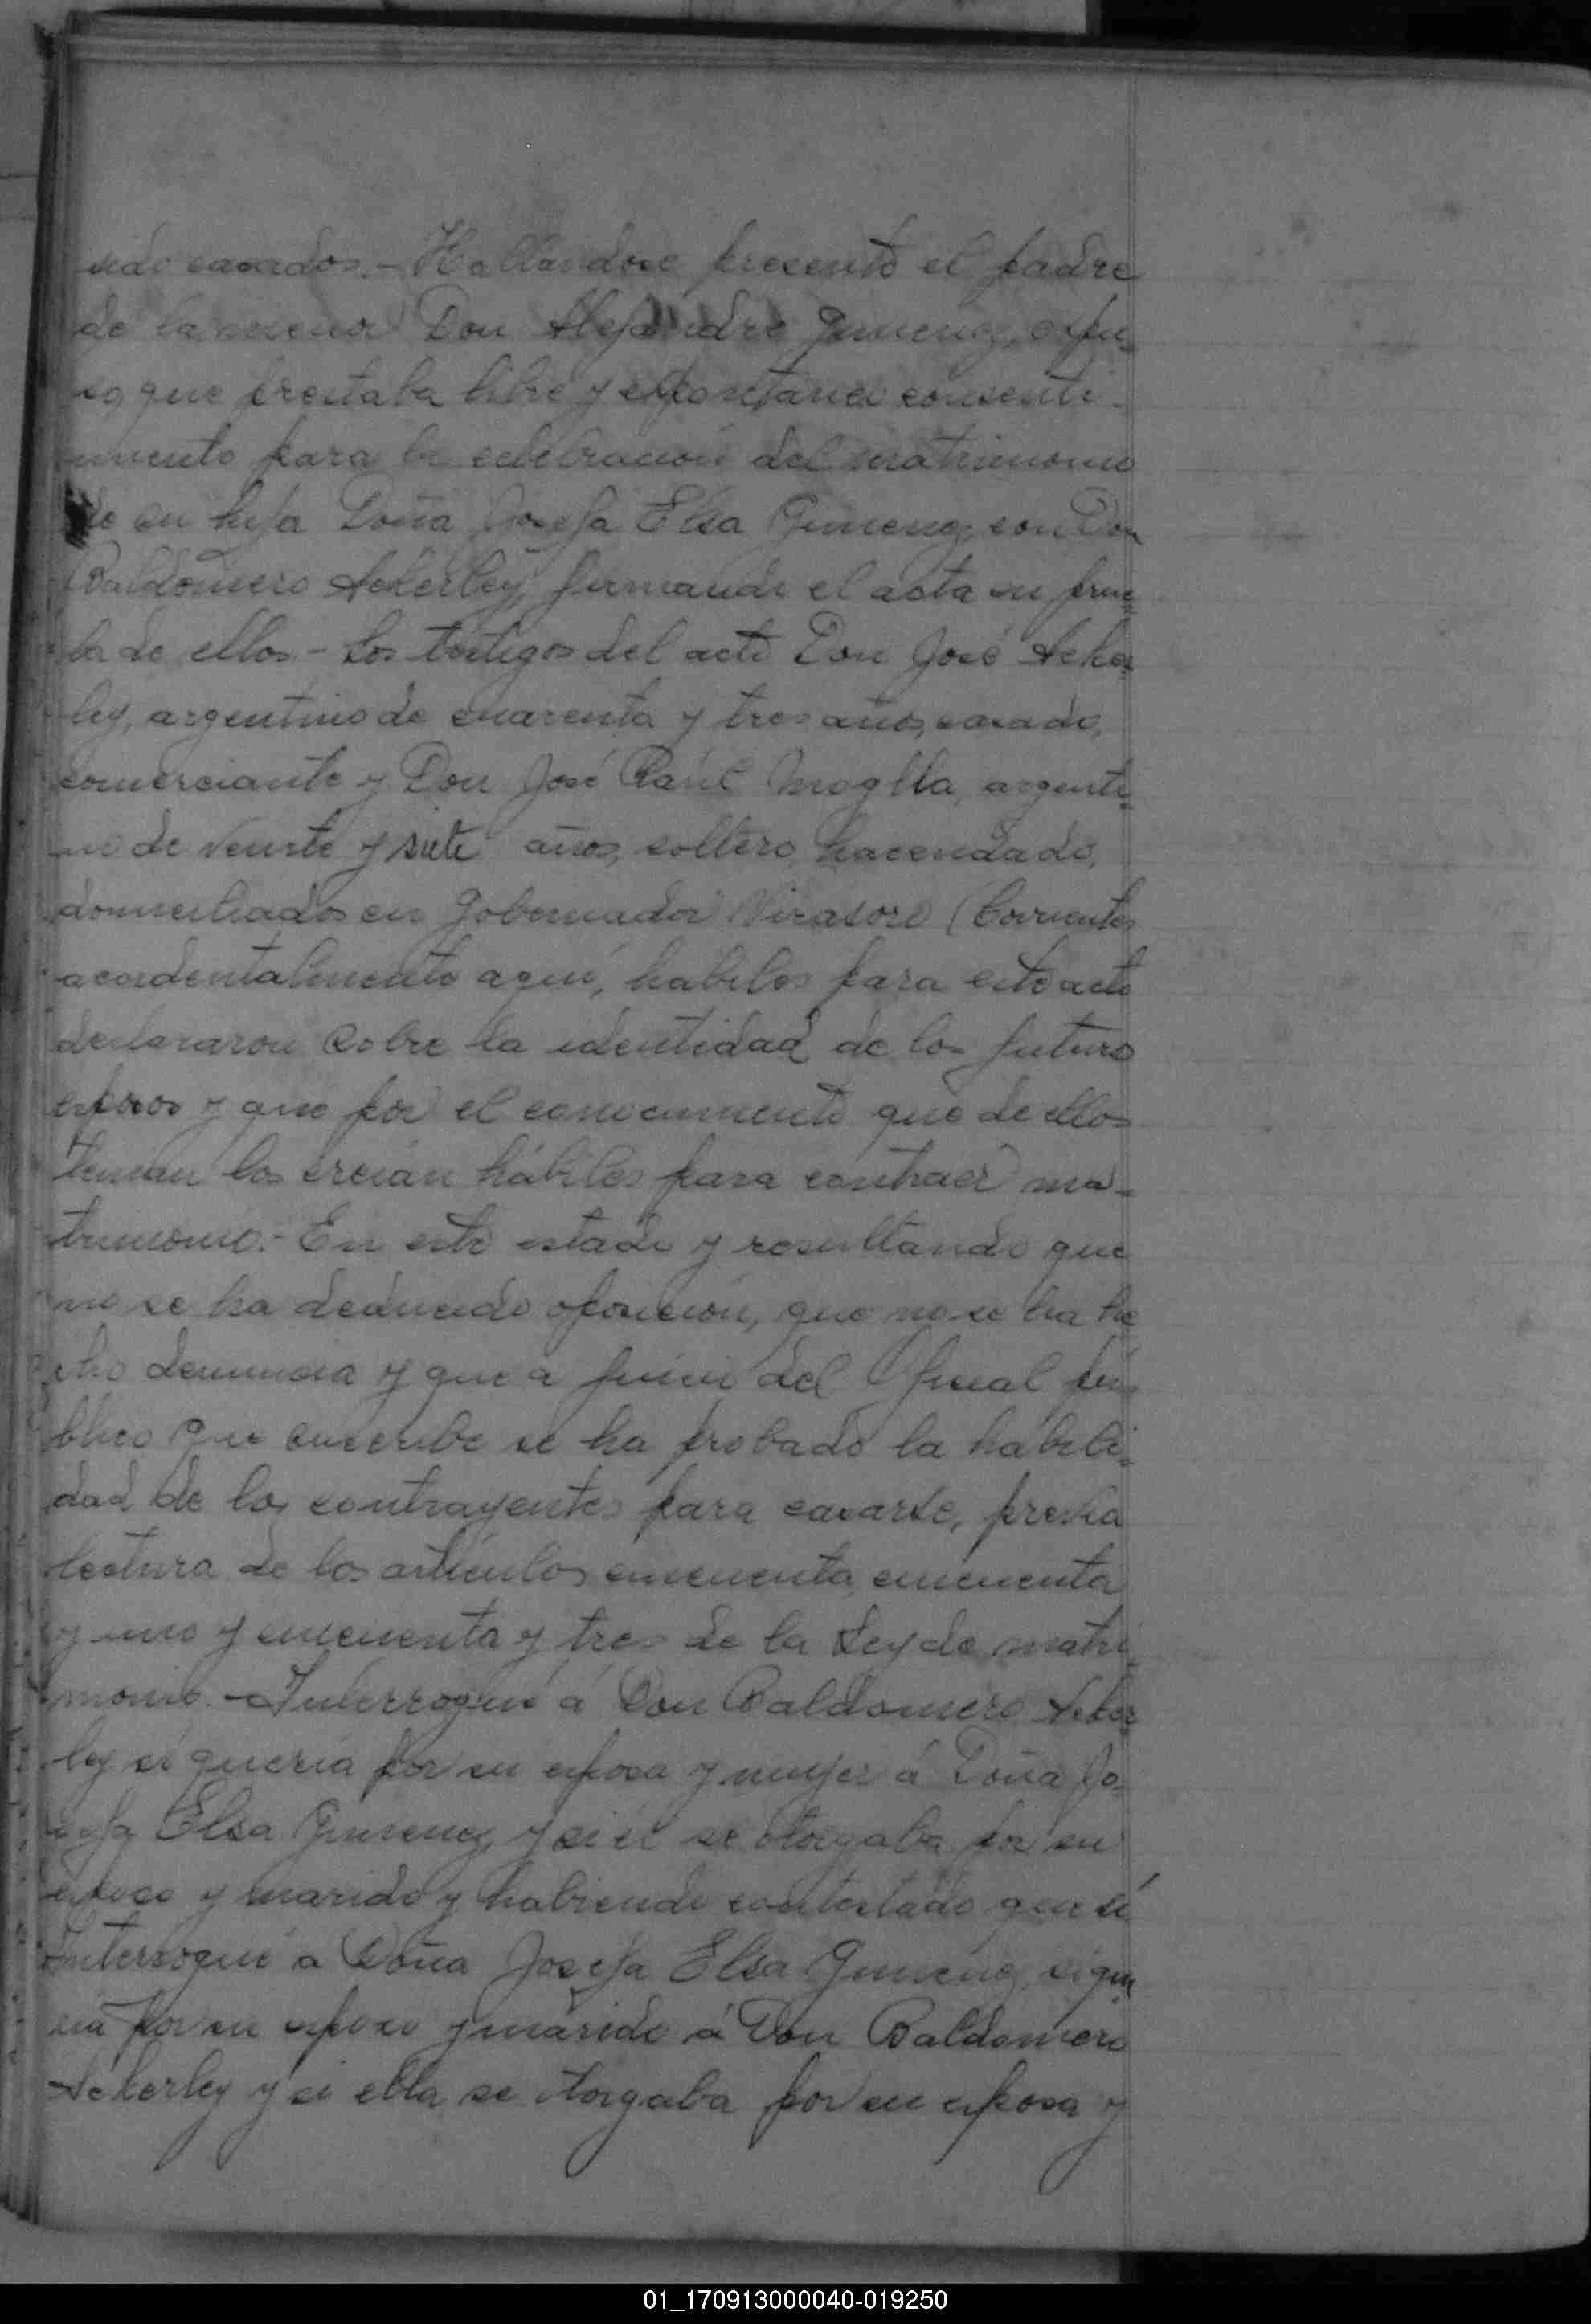 sido casados.- Hallandose presente el padre
de la menor Don Alejandro Gimenez, expu-
so que prestaba libre y espontaneo consenti-
miento para la celebracion del matrimonio
de su hija Doña Josefa Elsa Gimenez, con Don
Baldomero Ackerley, firmando el acta en prue-
ba de ello.- Los testigos del acto Don José Acker
ley, argentino de cuarenta y tres años, casado,
comerciante y Don José Raúl Moglia, argenti-
no de veinte y siete años, soltero, hacendado,
domiciliados en Gobernador Virasoro (Corrientes
accidentalmente aquí, habiles para este acto
declararon sobre la identidad de los futuros
esposos y que por el conocimiento que de ellos
tenian los creian hábiles para contraer ma-
trimonio.- En este estado y resultando que
no se ha deducido oposicion, que no se ha he
cho denuncia y que a juicio del Oficial pú-
blico que suscribe se ha probado la habili-
dad de los contrayentes para casarse, previa
lectura de los artículos cincuenta, cincuenta
y uno y cincuenta y tres de la Ley de matri-
monio.- Interrogué á Don Baldomero Acker
ley si queria por su esposa y mujer á Doña Jo-
sefa Elsa Gimenez, y si él se otorgaba por su
esposo y marido y habiendo contestado que sí
Interrogué a Doña Josefa Elsa Gimenez, si que
ria por su esposo y marido á Don Baldomero
Ackerley y si ella se otorgaba por su esposa y
01_170913000040-019250